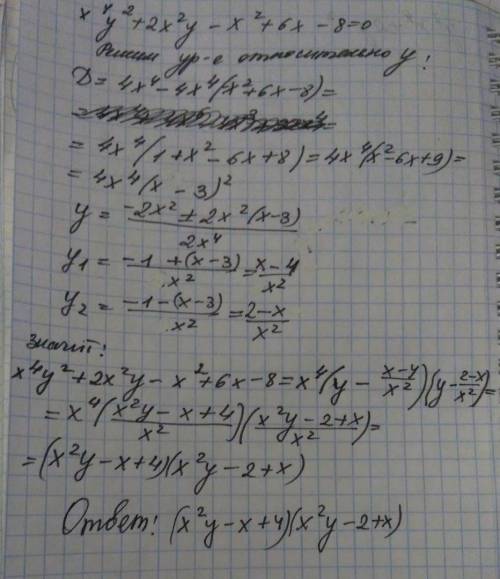 x⁴y²+2x²y-x²+6x-8=0
Решим ур-е относительно y:
D=4x⁴-4x⁴(-x²+6x-8)=
=4x⁴(1+x²-6x+8)=4x⁴(x²-6x+9)=
=4x⁴(x-3)²
y=(-2x²±2x²(x-3))/(2x⁴)
y₁=(-1+(x-3))/x²=(x-4)/x²
y₂=(-1-(x-3))/x²=(2-x)/x²
значит:
x⁴y²+2x²y-x²+6x-8=x⁴(y-(x-4)/x²)(y-(2-x)/x²)=
=x⁴((x²y-x+4)/x²)((x²y-2+x)/x²)=
=(x²y-x+4)(x²y-2+x)
Ответ: (x²y-x+4)(x²y-2+x)